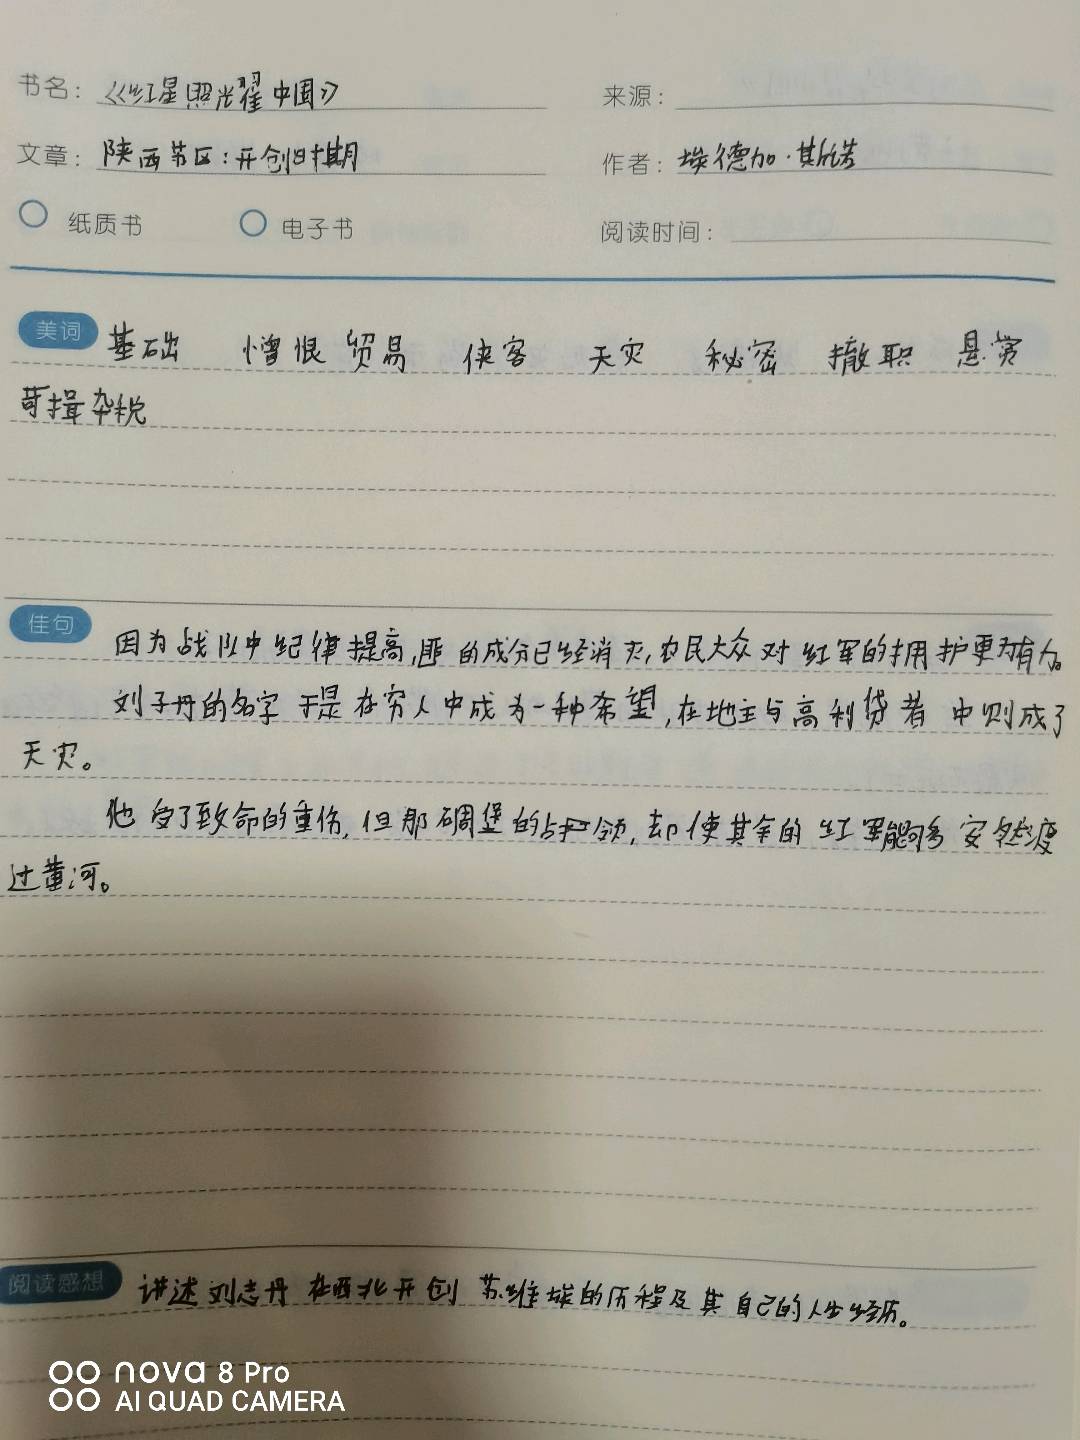 书名：《红星照光耀中国》 来源：
文章：陕西苏区：开创时期 作者：埃德加·斯诺
纸质书 电子书 阅读时间：
美词 基础 憎恨 贸易 侠客 天灾 秘密 撤职 悬赏
苛揖杂税
佳句 因为战队中纪律提高,匪的成分已经消灭,农民大众对红军的拥护更为有力。
刘子丹的名字于是在穷人中成为一种希望,在地主与高利贷者中则成了
天灾。
他受了致命的重伤,但那碉堡的占领,却使其余的红军能够安然渡
过黄河。
阅读感想 讲述刘志丹在西北开创苏维埃的历程及其自己的人生经历。
nova 8 Pro
AI QUAD CAMERA